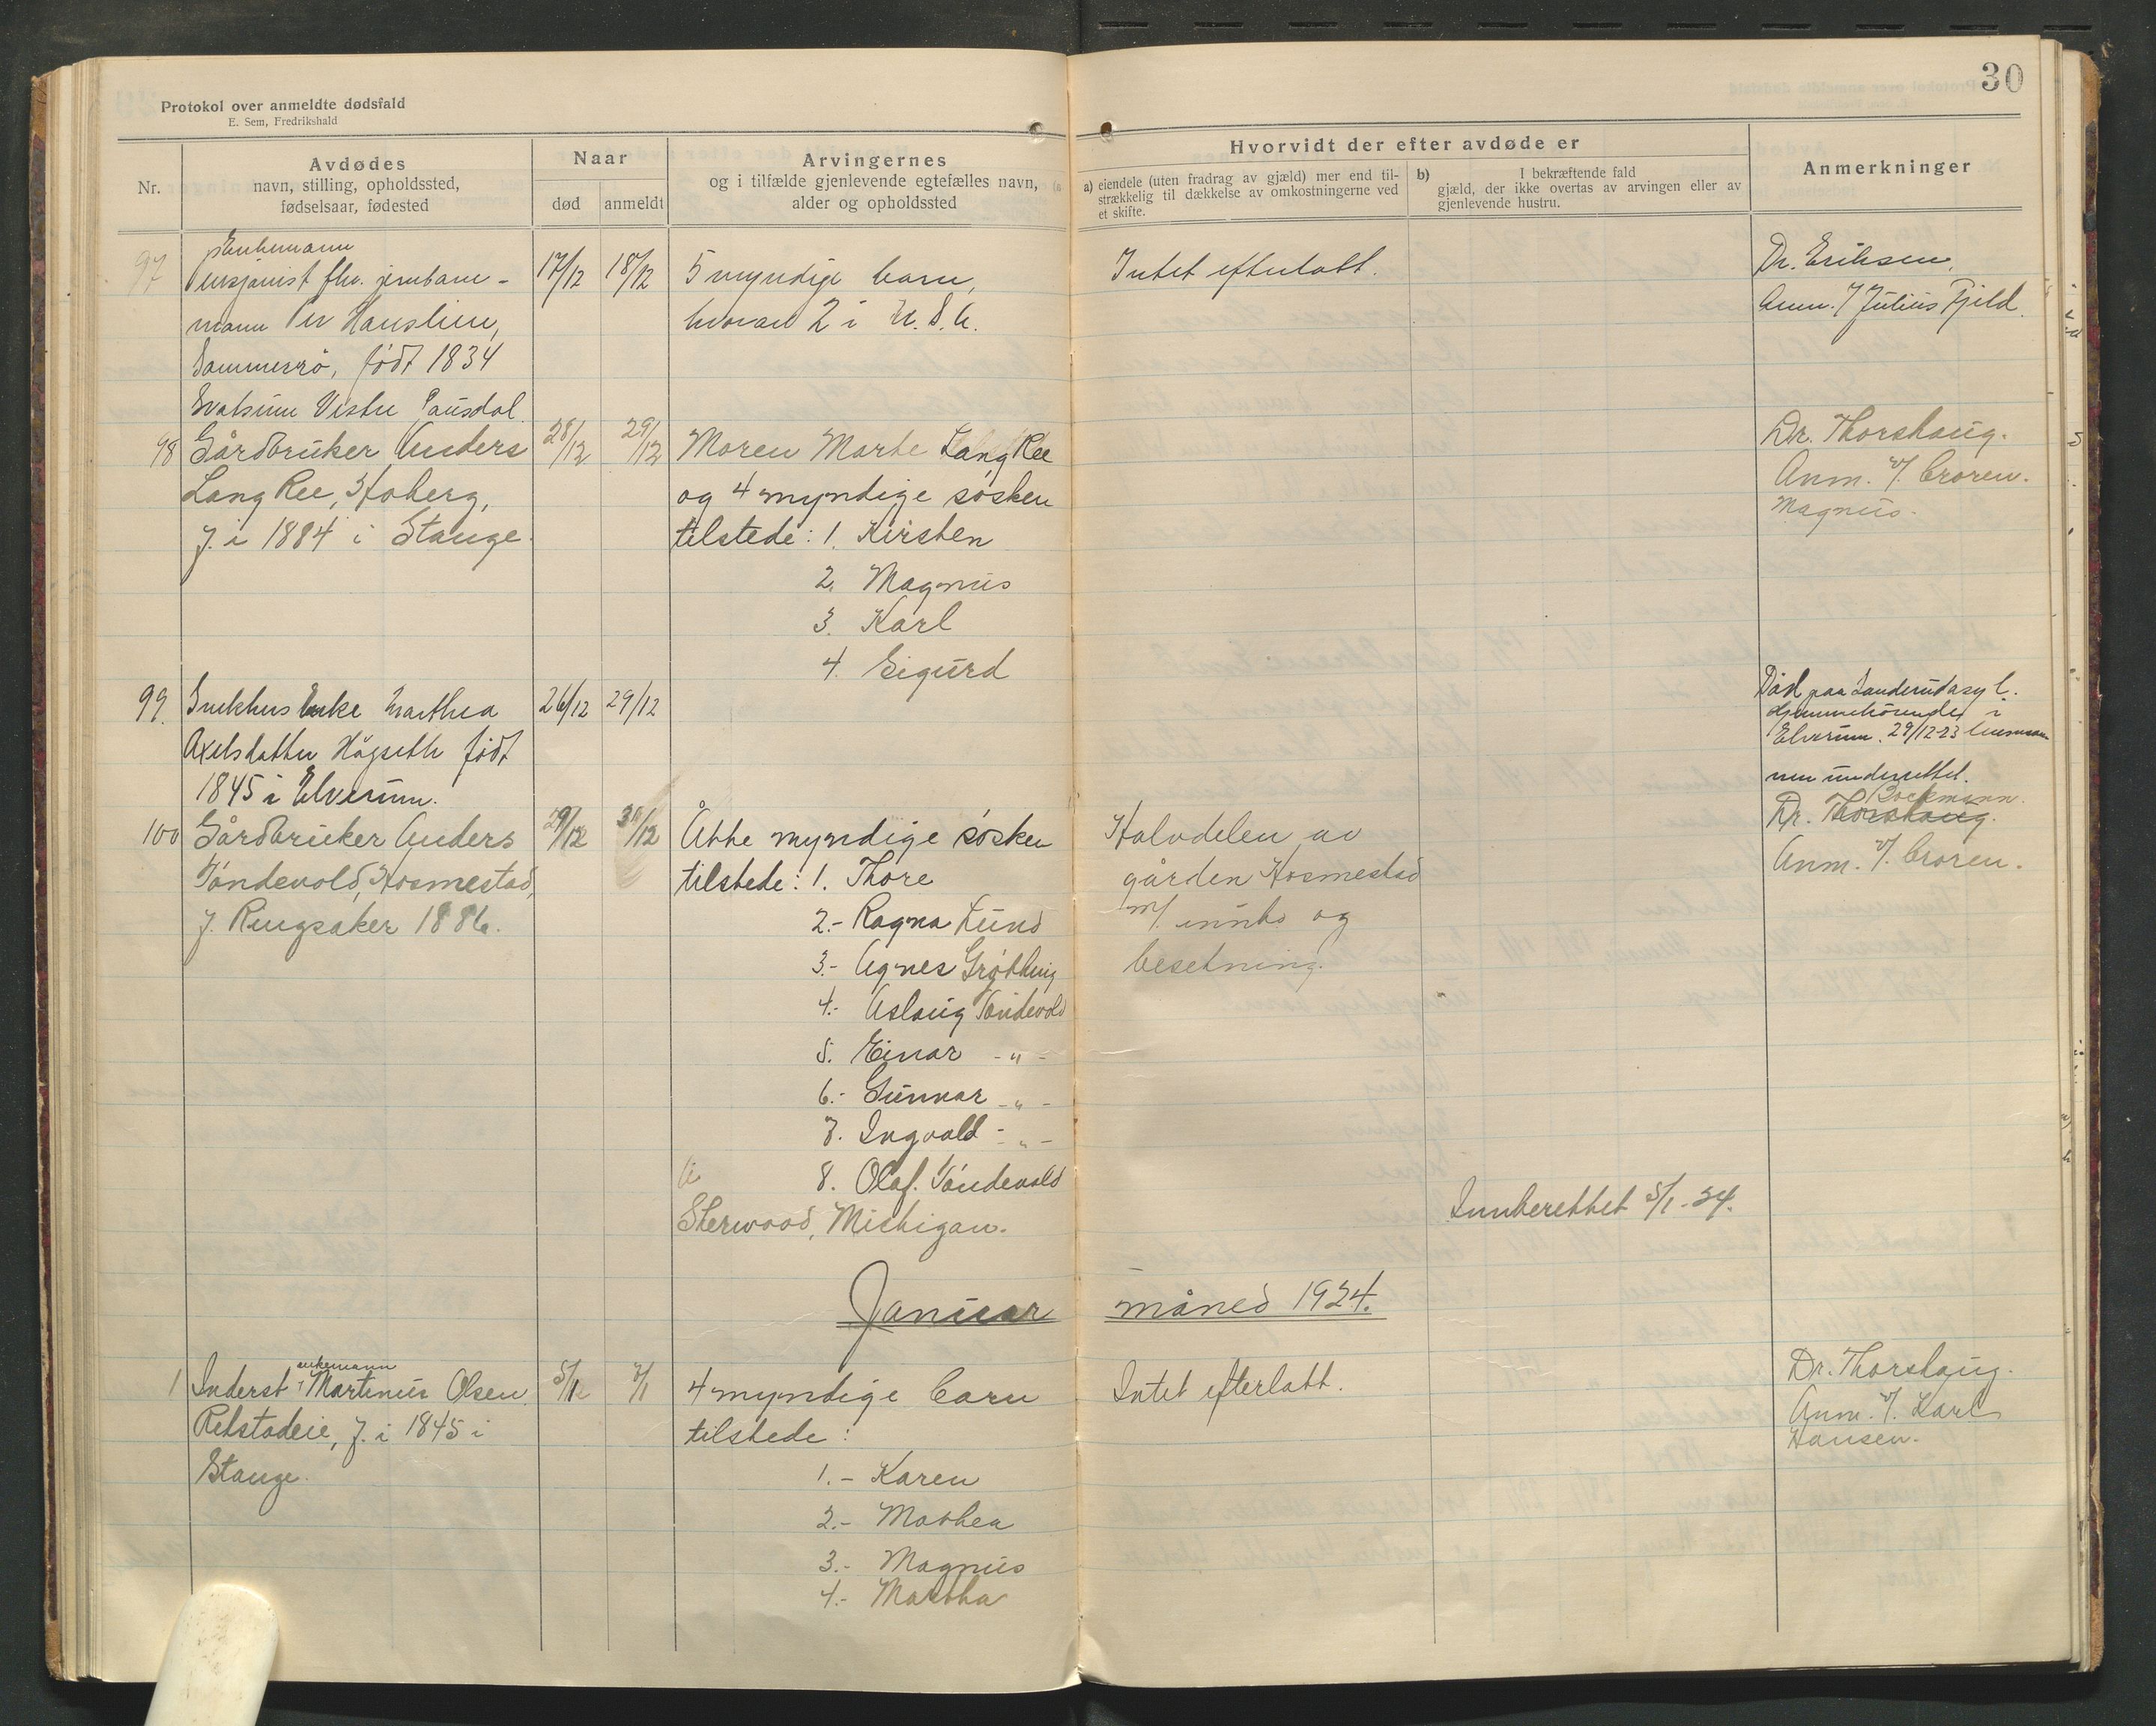 30
Protokol over anmeldte dødsfald
E. Sem, Fredrikshald
Nr.
Avdødes
navn, stilling, opholdssted,
fødselsaar, fødested
Naar
død
anmeldt
Arvingernes
og i tilfælde gjenlevende egtefælles navn,
alder og opholdssted
Hvorvidt der efter avdøde er
a) eiendele (uten fradrag av gjæld) mer end til-
strækkelig til dækkelse av omkostningerne ved
et skifte.
b) I bekræftende fald
gjæld, der ikke overtas av arvingen eller av
gjenlevende hustru.
Anmerkninger
97
Enkemann
Pensjonist fhv. jernbane-
mann Per Hauslien,
Sommerrö, født 1834
Vestre Gausdal
17/12
18/12
5 myndige barn,
hvorav 2 i U. S. A.
Intet efterlatt.
Dr. Eriksen
Anm. / Julius Fjeld
98
Gårdbruker Anders
Lang Ree, Hoberg,
f. i 1884 i Stange.
28/12
29/12
Moren Marte Lang Ree
og 4 myndige søsken
tilstede: 1. Kirsten
2. Magnus
3. Karl
4. Sigurd
Dr. Thorshaug.
Anm. v/. broren.
Magnus.
99.
enke Marthea
Axelsdatter Högseth født
1845 i Elverum.
26/12
29/12
Död paa Sanderudasyl.
Hjemmehörende i
Elverum. 29/12-23 lensman
nen underrettet.
100
Gårdbruker Anders
Töndevold, Hosmestad,
f. Ringsaker 1886.
29/12
30/12
Åtte myndige søsken
tilstede: 1. Thore
2.- Ragna Lund
3.- Agnes Grøtting
4.- Aslaug Töndevold
5. Einar -"-
6.- Gunnar -"-
7. Ingvald -"-
8. Olaf. Töndevold
Sherwood, Michigan.
Halvdelen av
gården Hosmestad
m/. innbo og
besetning.
Bockmann.
Dr. Thorshaug.
Anm. v/. broren.
Innberettet 5/1-24.
Januar måned 1924.
1
enkemann
Inderst Martinus Olsen
Retstadeie, f. i 1845 i
Stange.
5/1
7/1
4 myndige barn
tilstede:
1.- Karen
2.- Mathea
3.- Magnus
4.- Martha
Intet efterlatt.
Dr. Thorshaug.
Anm. v/. Karl
Hansen.